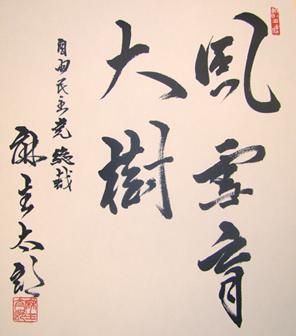 風雪育
大樹
自由民主党 総裁
麻生太郎